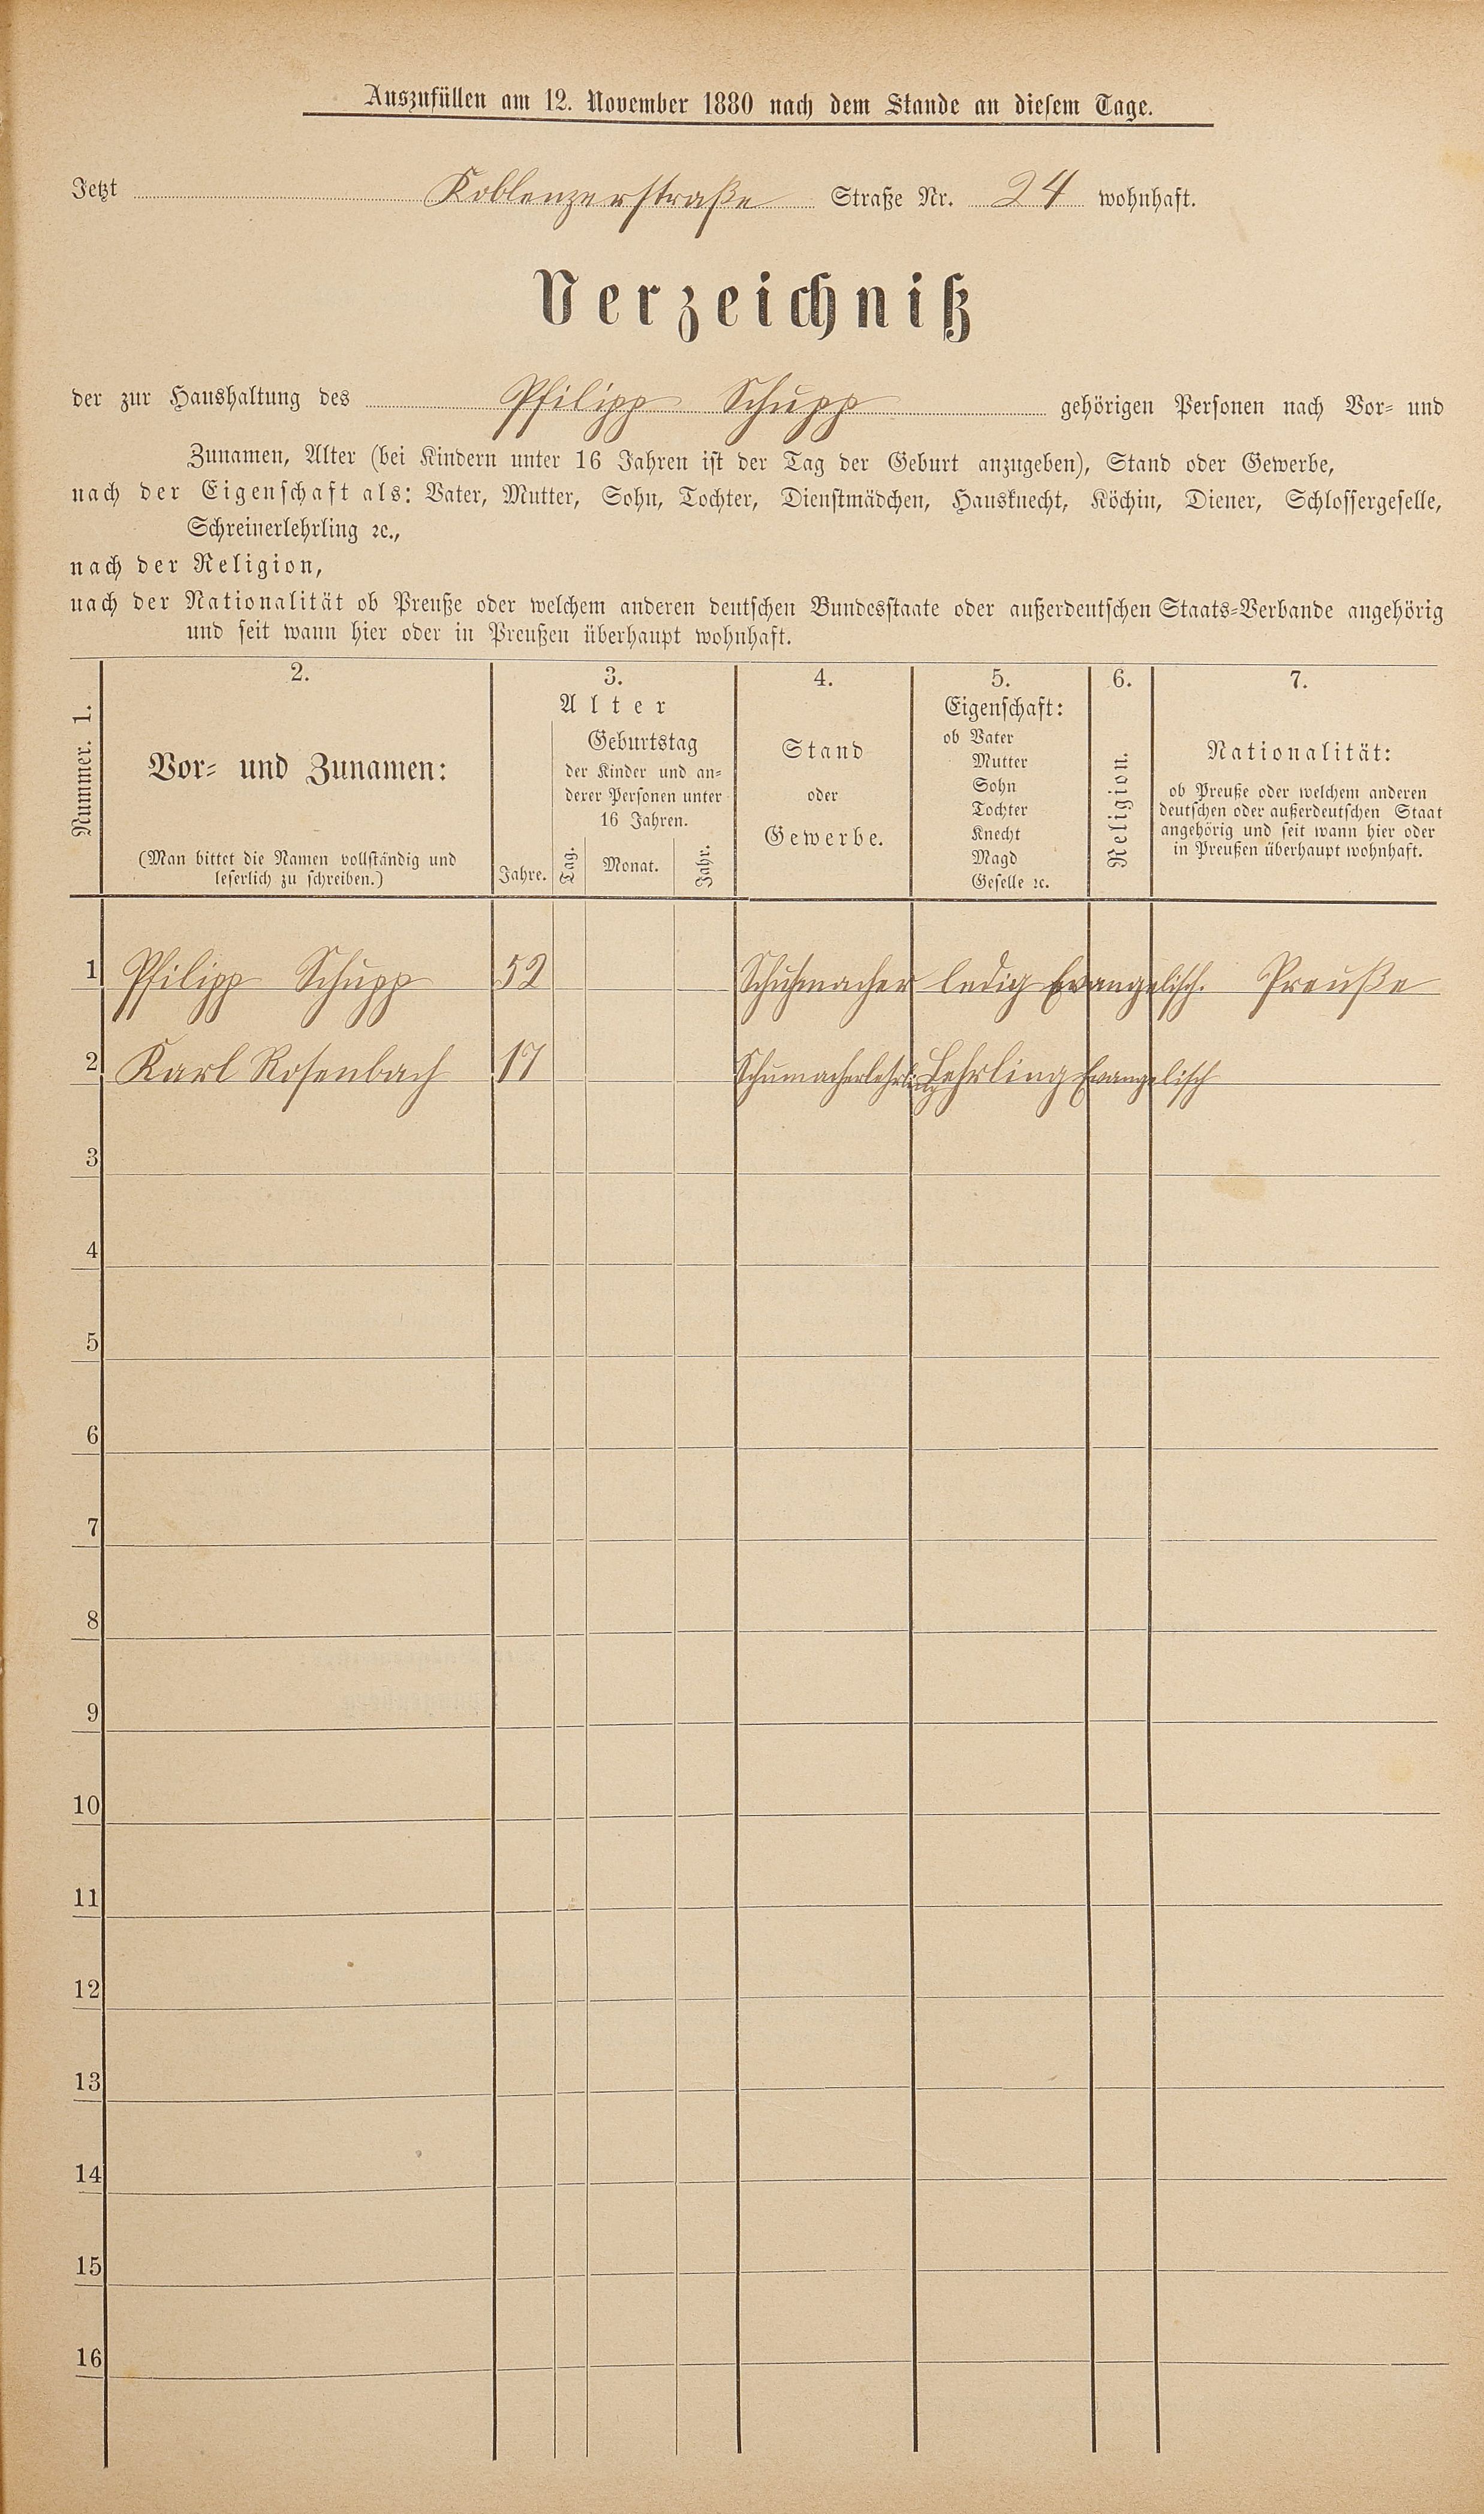 Auszufüllen am 12. November 1880 nach dem Stande an diesem Tage.
Jetzt Koblenzerstraße Straße Nr. 24 wohnhaft.
Verzeichniß
der zur Haushaltung des Philipp Schupp gehörigen Personen nach Vor- und
Zunamen, Alter (bei Kindern unter 16 Jahren ist der Tag der Geburt anzugeben), Stand oder Gewerbe,
nach der Eigenschaft als: Vater, Mutter, Sohn, Tochter, Dienstmädchen, Hausknecht, Köchin, Diener, Schlossergeselle,
Schreinerlehrling ꝛc.,
nach der Religion,
nach der Nationalität ob Preuße oder welchem anderen deutschen Bundesstaate oder außerdeutschen Staats-Verbande angehörig
und seit wann hier oder in Preußen überhaupt wohnhaft.
Nummer. 1.
2.
Vor- und Zunamen:
(Man bittet die Namen vollständig und
leserlich zu schreiben.)
3.
Alter
Jahre.
Geburtstag
der Kinder und an-
derer Personen unter
16 Jahren.
Tag. Monat. Jahr.
4.
Stand
oder
Gewerbe.
5.
Eigenschaft:
ob Vater
Mutter
Sohn
Tochter
Knecht
Magd
Geselle ꝛc.
6.
Religion.
7.
Nationalität:
ob Preuße oder welchem anderen
deutschen oder außerdeutschen Staat
angehörig und seit wann hier oder
in Preußen überhaupt wohnhaft.
1 Philipp Schupp 52 Schuhmacher ledig Evangelisch. Preuße
2 Karl Rosenbach 17 Schumacherlehrling Lehrling Evangelisch
3
4
5
6
7
8
9
10
11
12
13
14
15
16